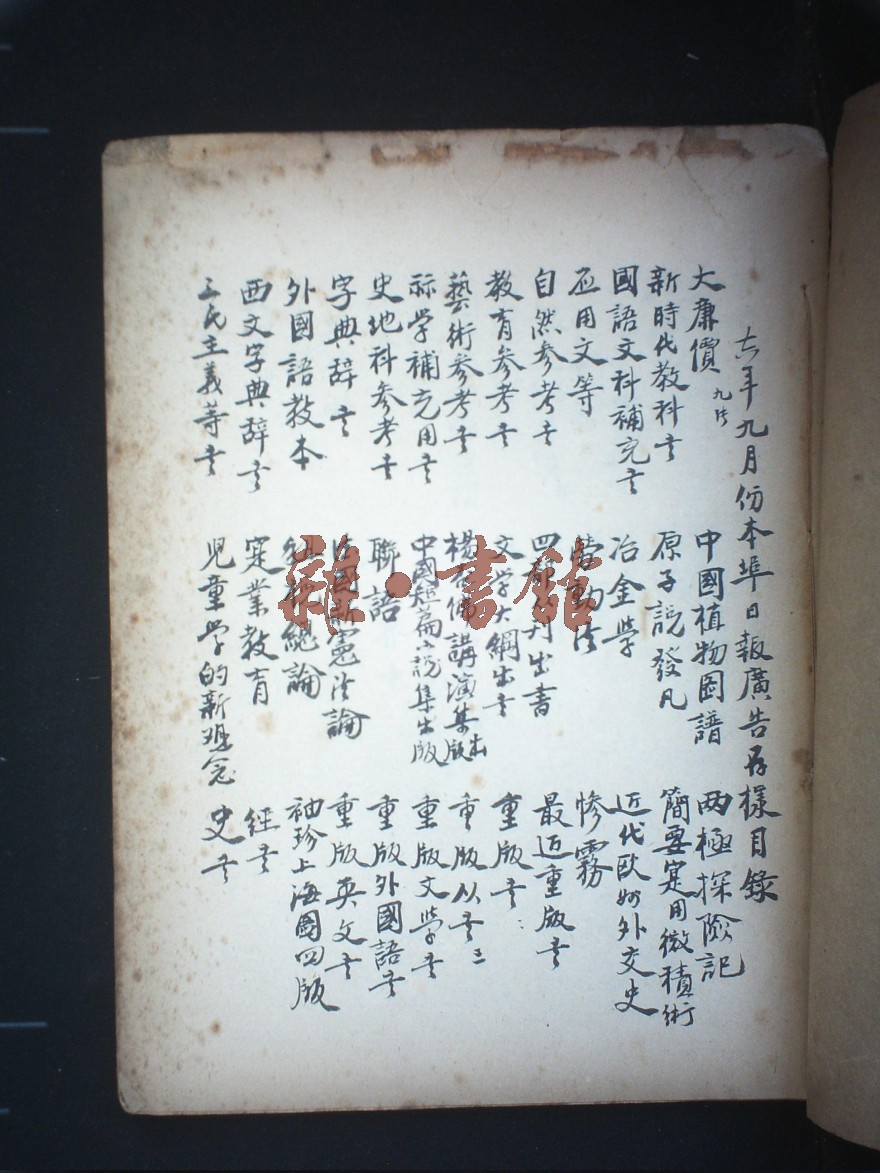 六年九月份本埠日報廣告存樣目錄
大廉價 九片
新時代教科书
國語文科補充书
应用文等
自然参考书
教育参考书
藝術参考书
科学補充用书
史地科参考书
字典辞书
外國語教本
西文字典辞书
三民主義等书
中國植物圖譜
原子說發凡
冶金學
勞動法
四部叢刊出書
文学大綱出书
楊杏佛講演集出版
中國短篇小說集出版
聯語
法國新憲法論
總論
寔業教育
児童学的新观念
两極探險記
簡要寔用微積術
近代欧州外交史
惨霧
最近重版书
重版书
重版从书 三
重版文學书
重版外國語书
重版英文书
袖珍上海圖四版
經书
史书
雜·書館